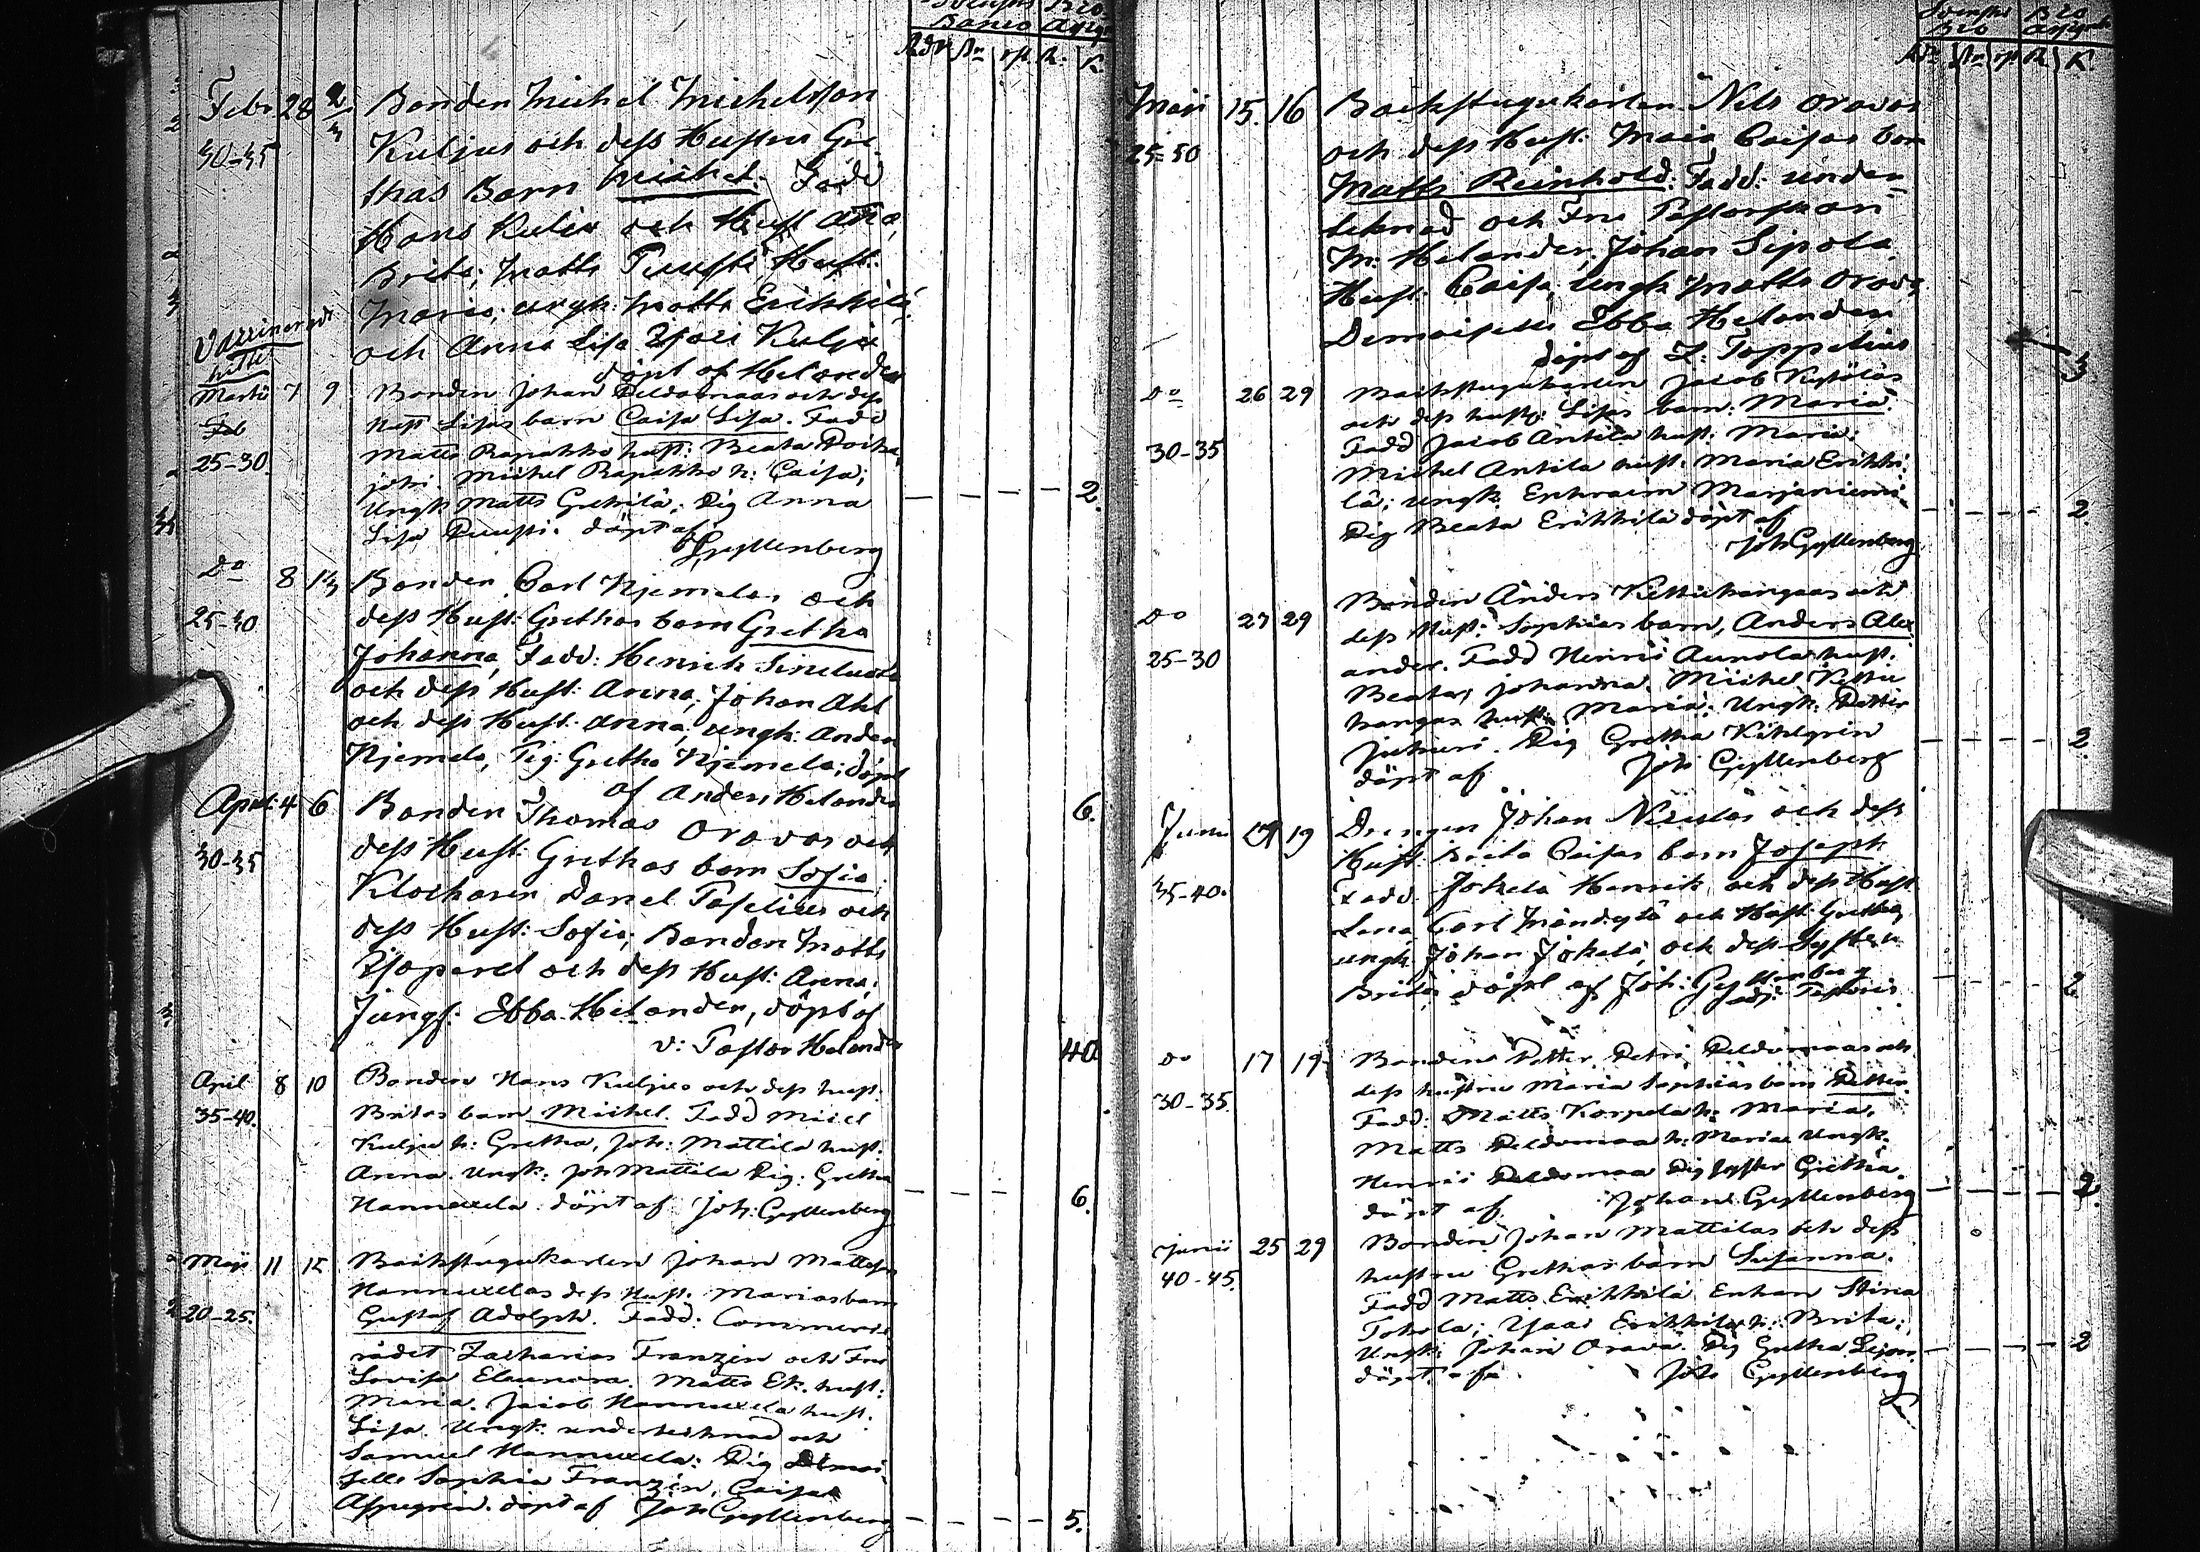 Banco
Febr 28 2/3 Bonden Michel Michelsson
40-45 Kuljus och dess Hustru Gre
thas Barn Michel. Fadd
Hans Kulju och Hust
Brita; Matts Hust:
Maria; ungk: Matts Erikkilä
och Anna Lisa Kulju
döpt af Helander
Vaccinerade
Martii 7 9 Bonden Johan Peldomaas och dess
Feb Hust Lisas barn Caisa Lisa. Fadd
25-30. Matts Rapakko hust: Beata
Michel Rapakko h: Caisa;
Ungk Matts Gretkilä; Pig Anna
Lisa döpt af
Gyllenberg
2.
Do 8 13 Bonden Carl Njemelas och
25-30 dess Hust: Grethas barn Gretha
Johanna, Fadd: Henrik
och dess Hust: Anna; Johan Ahl
och dess Hust: Anna; ungk: Anders
Njemela, Pig: Gretha Njemela; döpt
af Anders Helander
6.
April 4 6 Bonden Thomas Oravas och
30-35 dess Hust: Grethas barn Sofia.
Klockaren Daniel och
dess Hust: Sofia; Bonden Matts
och dess Hust: Anna;
Jungf: Ebba Helander, döpt af
v: Pastor Helander
40
April 8 10 Bonden Hans Kuljus och dess hust.
35-40. Britas barn Michel. Fadd Micel
Kulju h: Gretha, Joh: Mattila hust.
Anna. Ungk: Joh Mattila Pig: Gretha
Hannuxela. döpt af Joh: Gyllenberg
6.
Maji 11 12 Backstugukarlen Johan Mattsson
20-25. Hannuxelas dess Hust. Marias barn
Gustaf Adolph. Fadd: Commercie
rådet Zacharias Franzén och Fru
Lovisa Eleonora. Matts Ek. hust:
Maria. Jacob Hannuxela hust.
Lisa. Ungk. undertecknad och
Samuel Hannuxela: Pig Demoi
selle Sophia Franzén, Caisa
Aspegren. döpt af Joh Gyllenberg
5.
Maji 15. 16 Backstugukarlen Nils Oravas
25-50 och dess Hust: Maja Caisas barn
Matts Reinhold. Fadd: under
teknad och Fru Pastorskan
M: Helander, Johan Sipola,
Hust: Caisa, ungk Matts Orava
Demoiselle Ebba Helander
döpt af Z: Toppelius
3
Do 26 29 Backstugukarlen Jacob
och dess hust: Lisas barn: Maria.
30-35 Fadd Jacob Antila hust: Maria:
Michel Antila hust: Maria Erikki
lä; ungk Ephraim Marjaniemi
Pig Beata Erikkilä döpt af
Joh Gyllenberg
2.
Do 27 29 Bonden Anders Kettukangaas och
dess Hust: Sophias barn, Anders Alex
25-30 ander. Fadd Henric Aunola hust.
Beata, Johanna. Michel Kettu
kangas hust: Maria: Ungk: Petter
Pig Gretha
döpt af Joh Gyllenberg
2.
Junii 17 19 Drengen Johan och dess
Hust: Brita Caisas barn Joseph
35-40. Fadd. Jokela Henrik, och dess Hust
Lena Carl och Hust: Gretha,
ungk: Johan Jokela, och dess Syster
Brita, döpt af Joh: Gyllenberg
adj: Pastoris
2
Do 17 19 Bonden Petter Petri Peldomaas och
dess hustru Maria Sophias barn Petter.
30-35. Fadd: Matts Korpela h: Maria.
Matts Peldomaa h: Maria Ungk.
Henric Peldomaa Pig syster Gretha
döpt af Johan Gyllenberg
2.
Junii 25 29 Bonden Johan Mattilas och dess
40-45. hustru Grethas barn Susanna.
Fadd Matts Erikkilä Enkan Stina
Tokola; Erikkilä h: Brita;
Ungk: Johan Orava. Pig Gretha
döpt af Joh Gyllenberg
2